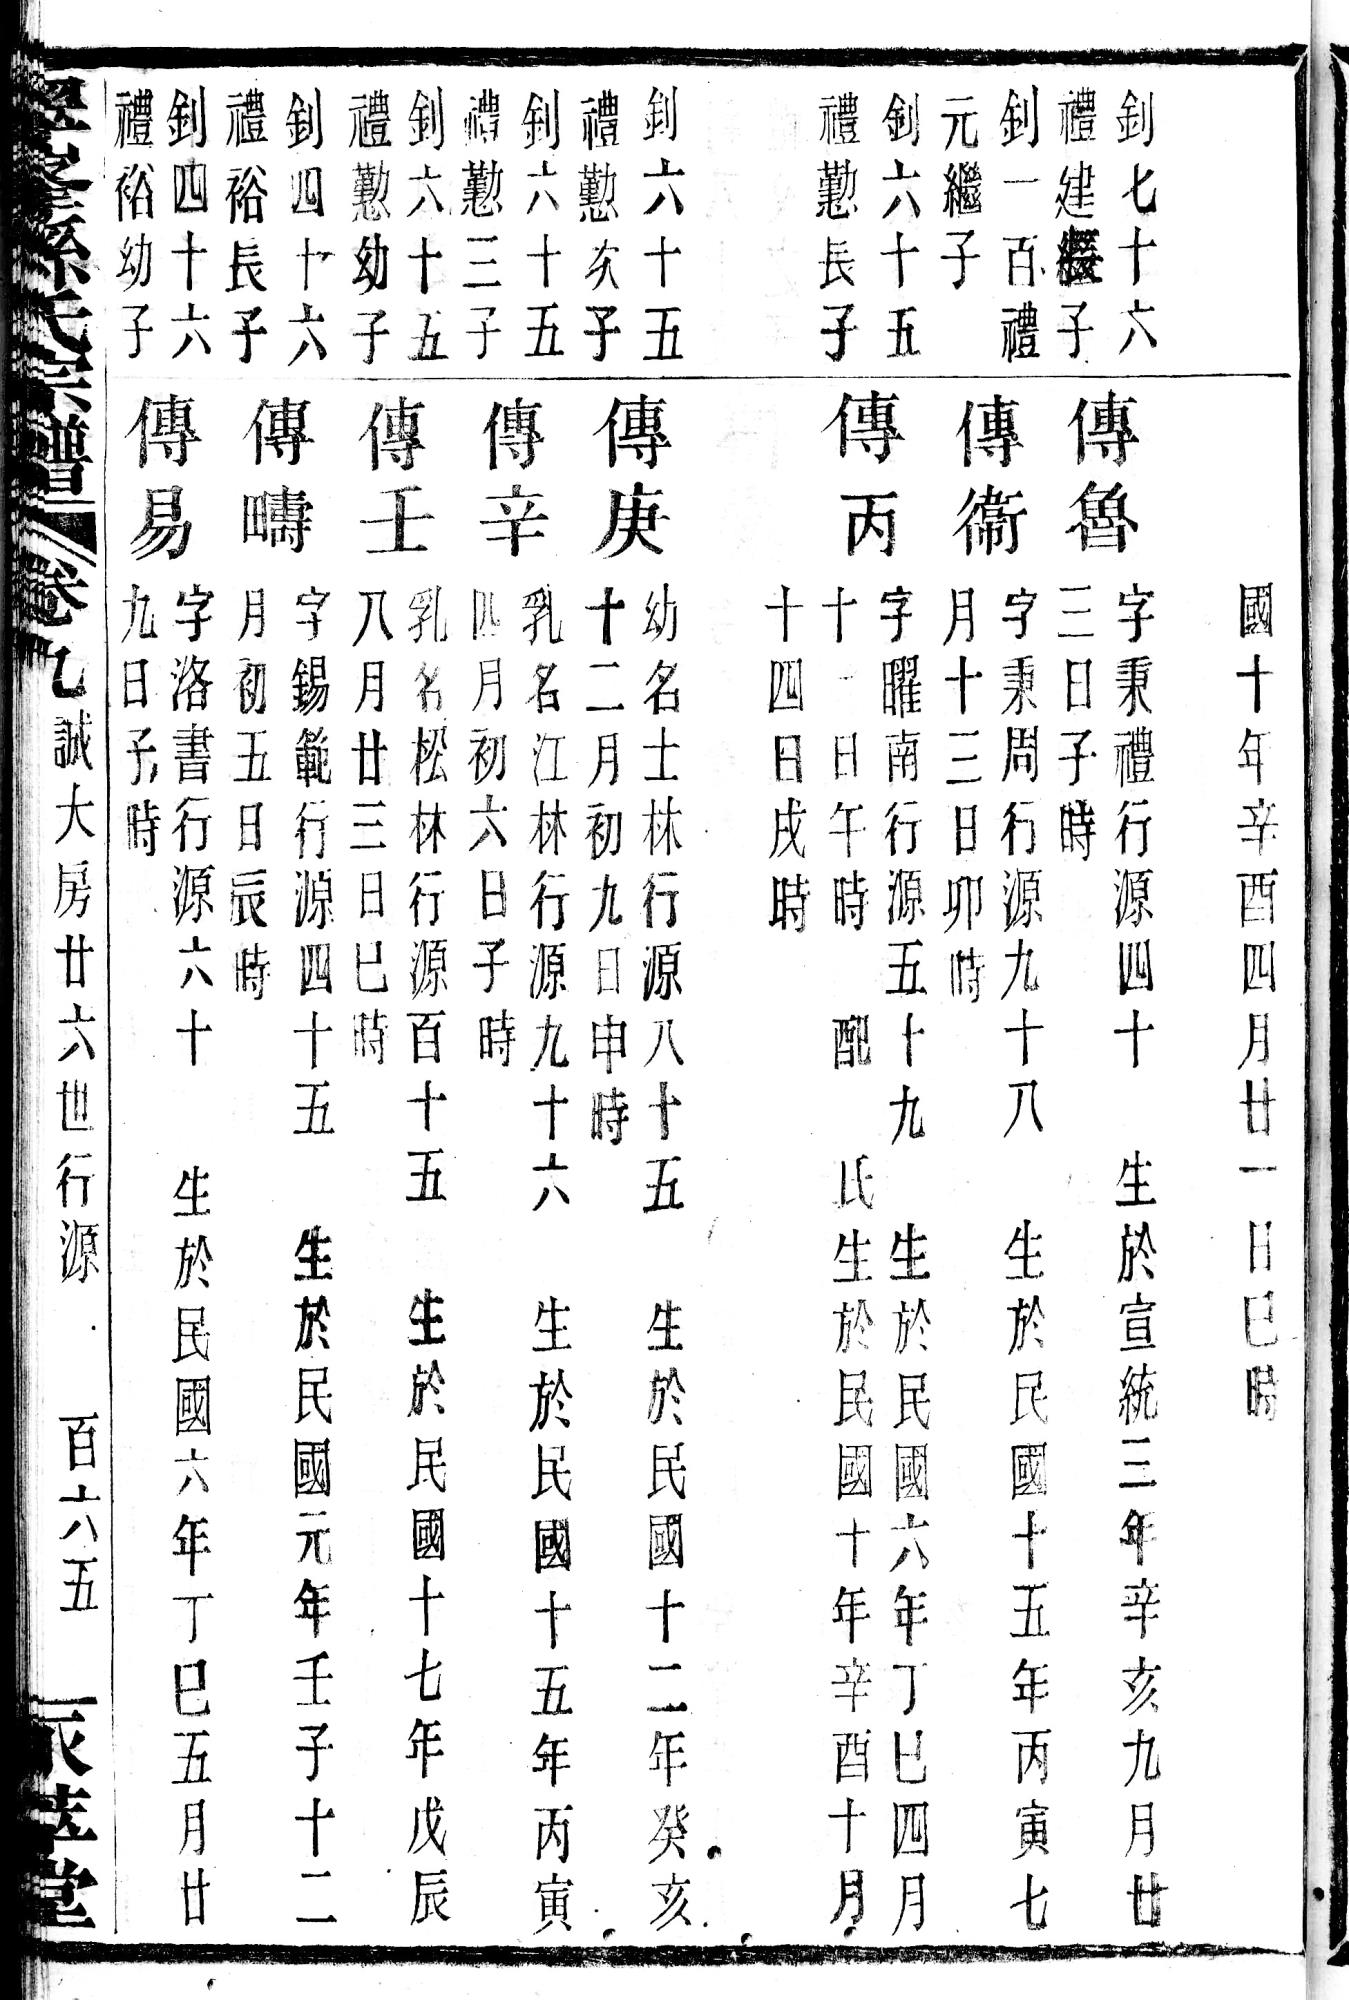 國十年辛酉四月廿一日巳時
釗七十六
禮建繼子
傳魯
字秉禮行源四十 生於宣統三年辛亥九月廿
三日子時
釗一百禮
元繼子
傳衞
字秉周行源九十八 生於民國十五年丙寅七
月十三日卯時
釗六十五
禮懃長子
傳丙
字曜南行源五十九 生於民國六年丁巳四月
十一日午時 配 氏生於民國十年辛酉十月
十四日戌時
釗六十五
禮懃次子
傳庚
幼名士林行源八十五 生於民國十二年癸亥
十二月初九日申時
釗六十五
禮懃三子
傳辛
乳名江林行源九十六 生於民國十五年丙寅
四月初六日子時
釗六十五
禮懃幼子
傳壬
乳名松林行源百十五 生於民國十七年戊辰
八月廿三日巳時
釗四十六
禮裕長子
傳疇
字錫範行源四十五 生於民國元年壬子十二
月初五日辰時
釗四十六
禮裕幼子
傳易
字洛書行源六十 生於民國六年丁巳五月廿
九日子時
孫氏宗譜 卷九 誠大房廿六世行源 百六五 堂